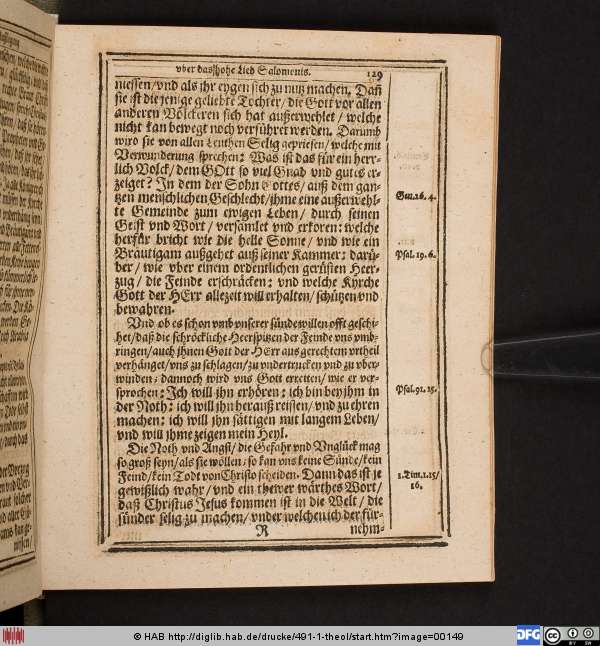 vber das hohe Lied Salomonis. 129
niessen/vnd als jhr eygen sich zu nutz machen. Dañ
sie ist die jenige geliebte Tochter/die Gott vor allen
anderen Völckeren sich hat außerwehlet/welche
nicht kan bewegt noch verführet werden. Darumb
wird sie von allen Leuthen Selig gepriesen/welche mit
Verwunderung sprechen: Was ist das für ein herr-
lich Volck/dem GOtt so viel Gnad vnd gutes er-
zeiget? In dem der Sohn Gottes/auß dem gan-
tzen menschlichen Geschlecht/jhme eine außerwehl-
te Gemeinde zum ewigen Leben/durch seinen
Geist vnd Wort/versamlet vnd erkoren: welche
herfür bricht wie die helle Sonne/vnd wie ein
Bräutigam außgehet auß seiner Kammer: darü-
ber/wie vber einem ordentlichen gerüsten Heer-
zug/die Feinde erschräcken: vnd welche Kyrche
Gott der HErr allezeit will erhalten/schützen vnd
bewahren.
Vnd ob es schon vmb vnserer sünde willen offt geschi-
het/daß die schröckliche Heerspitzen der Feinde vns vmb-
ringen/auch jhnen Gott der HErr aus gerechtem vrtheil
verhänget/vns zu schlagen/zu vndertrucken vnd zu vber-
winden: dannoch wird vns Gott erretten/wie er ver-
sprochen: Ich will jhn erhören: ich bin bey jhm in
der Noth: ich will jhn herauß reissen/vnd zu ehren
machen: ich will jhn sättigen mit langem Leben/
vnd will jhme zeigen mein Heyl.
Die Noth vnd Angst/die Gefahr vnd Vnglück mag
so groß seyn/als sie wöllen: so kan vns keine Sünde/kein
Feind/kein Todt von Christo scheiden. Dann das ist je
gewißlich wahr/vnd ein thewer wärthes Wort/
daß Christus Jesus kommen ist in die Welt/die
sünder selig zu machen/vnder welchen ich der für-
R nehm-
Gen.26.4.
Psal.19.6.
Psal.91.15.
1.Tim.1.15/
16.
© HAB http://diglib.hab.de/drucke/491-1-theol/start.htm?image=00149
DFG cc BY SA